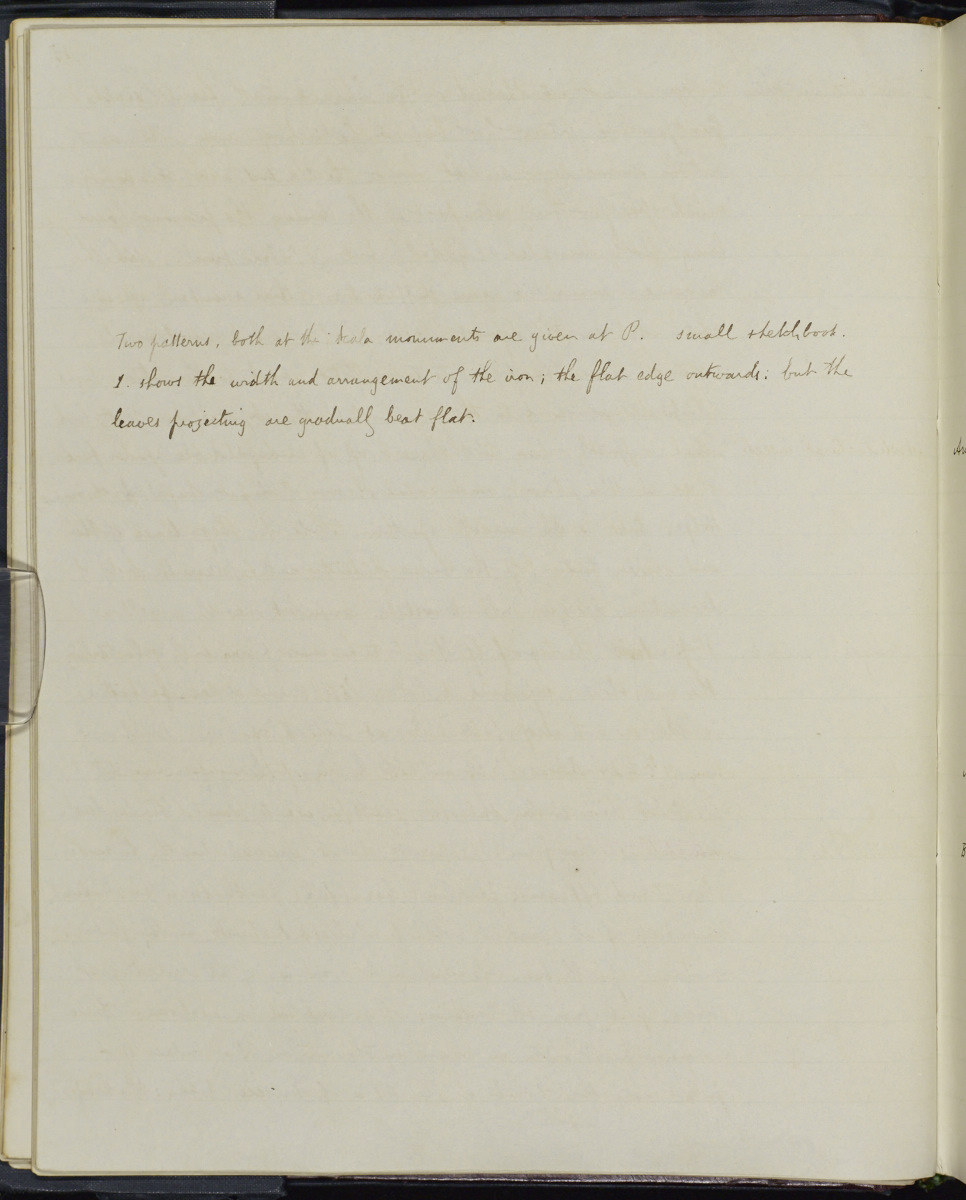 Two patterns, both at the Scala monuments are given at P. small sketchbook.
1. shows the width and arrangement of the iron; the flat edge outwards: but the
leaves projecting are gradually beat flat.